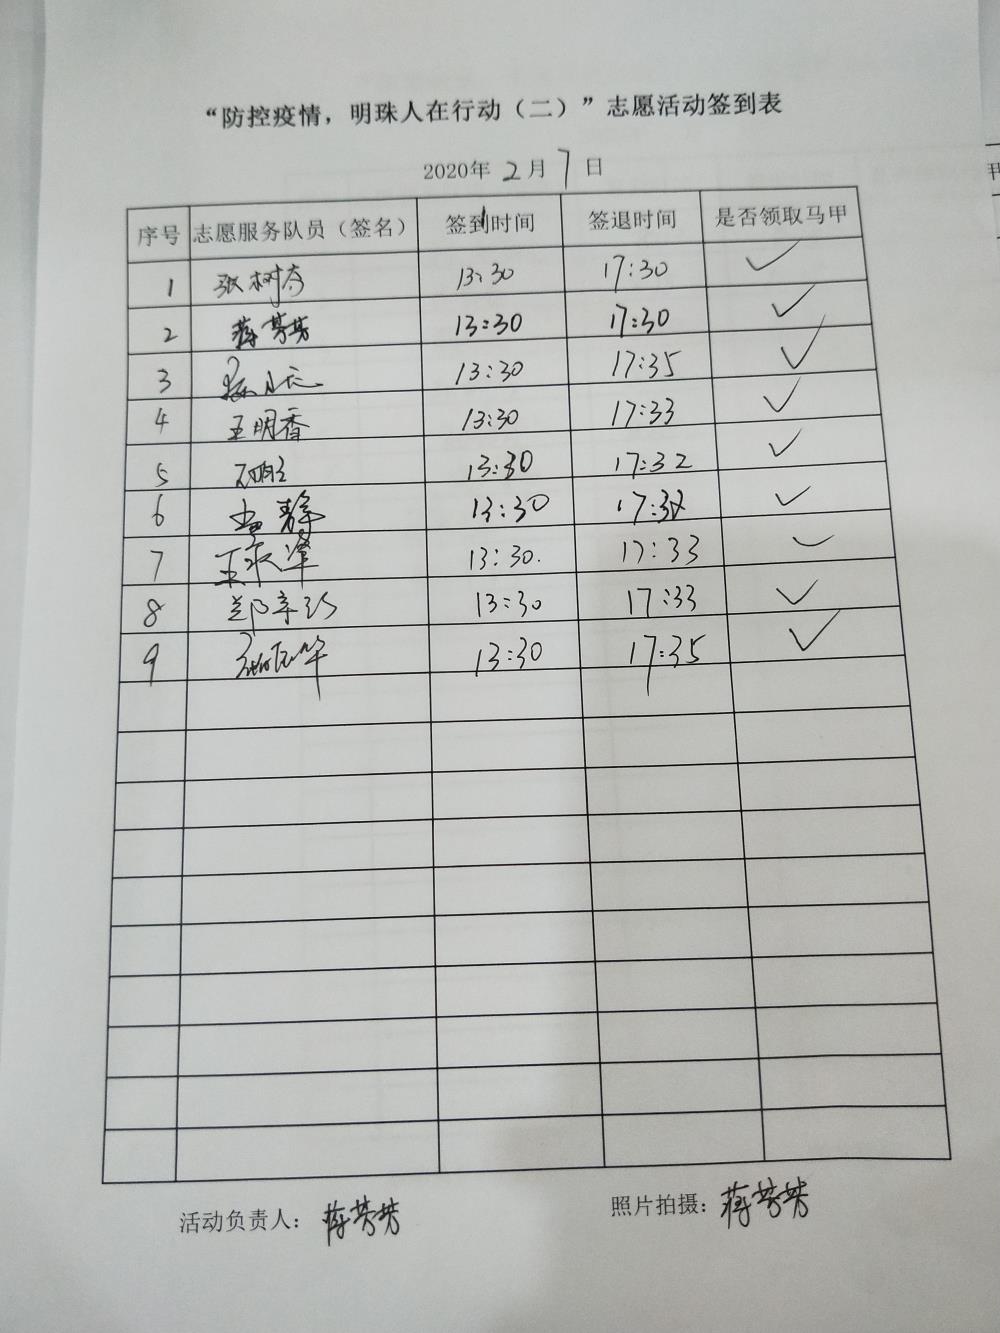 “防控疫情，明珠人在行动（二）”志愿活动签到表
2020年 2 月 7 日
序号 志愿服务队员（签名） 签到时间 签退时间 是否领取马甲
1 张树芬 13:30 17:30 ✓
2 蒋芳芳 13:30 17:30 ✓
3 13:30 17:35 ✓
4 王明香 13:30 17:33 ✓
5 13:30 17:32 ✓
6 孟静 13:30 17:32 ✓
7 13:30. 17:33 ✓
8 13:30 17:33 ✓
9 13:30 17:35 ✓
活动负责人： 蒋芳芳 照片拍摄： 蒋芳芳